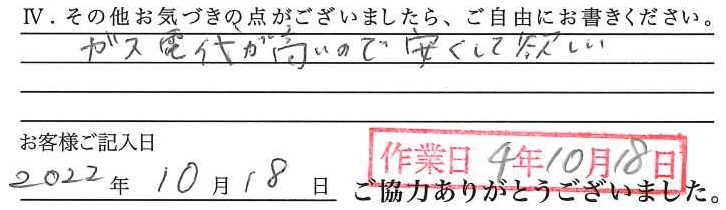 Ⅳ．その他お気づきの点がございましたら、ご自由にお書きください。
ガス電代が高いので安くして欲しい
お客様ご記入日
2022年 10月18日
作業日 4年10月18日
ご協力ありがとうございました。